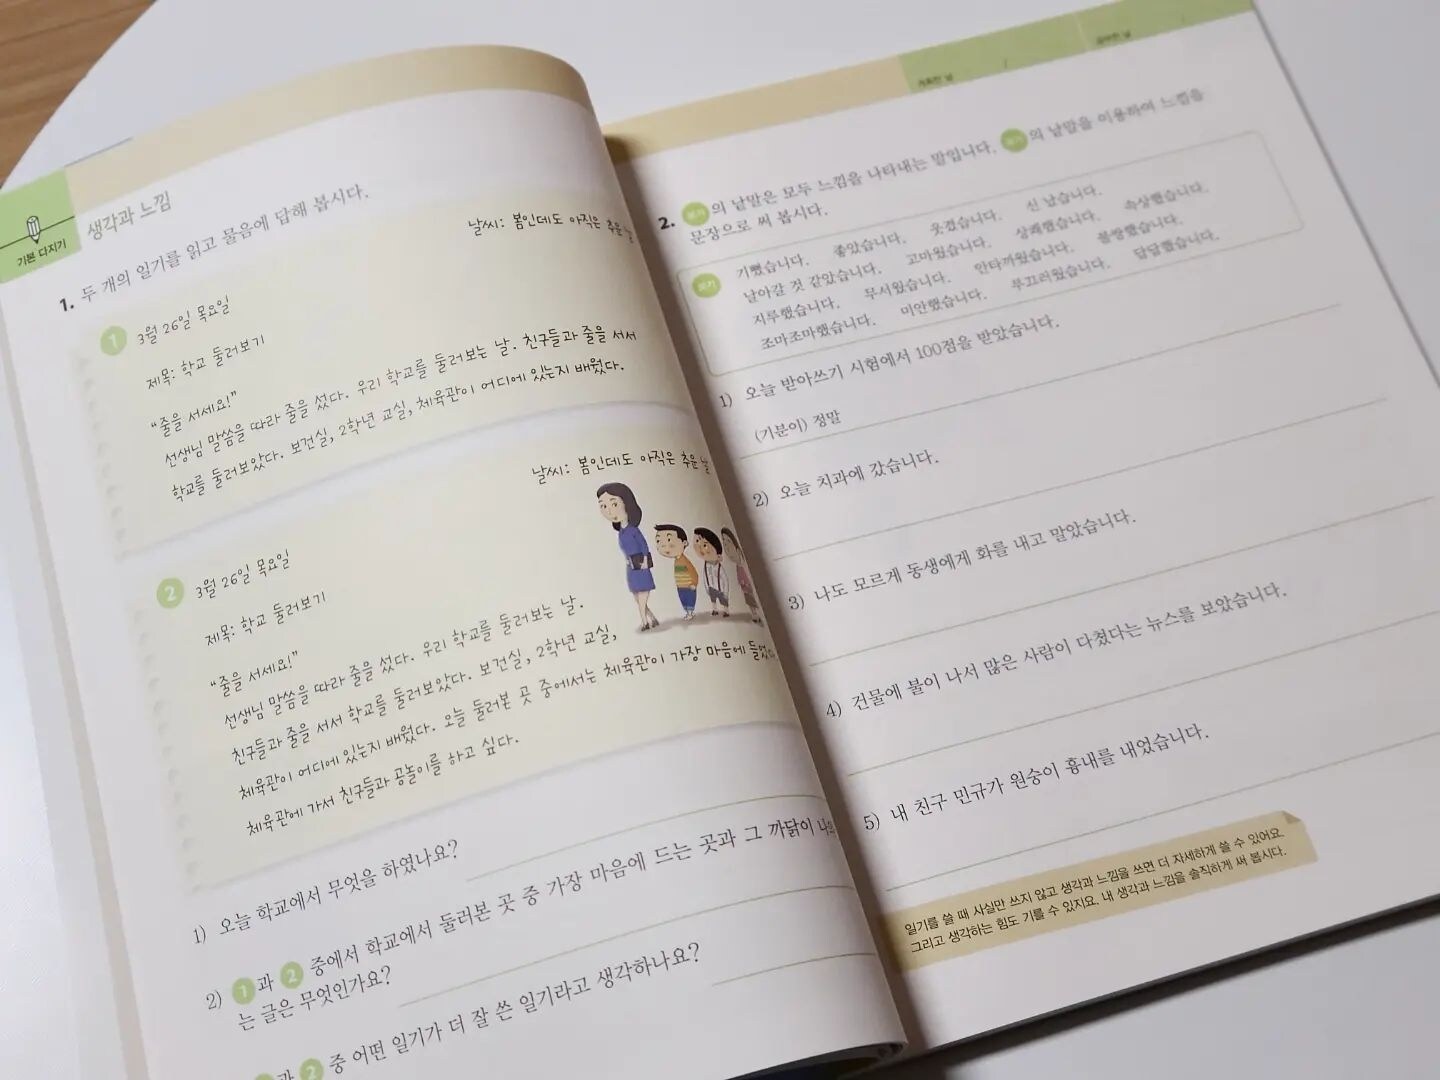 기본 다지기
생각과 느낌
1. 두 개의 일기를 읽고 물음에 답해 봅시다.
1 3월 26일 목요일
날씨: 봄인데도 아직은 추운 날
제목: 학교 둘러보기
“줄을 서세요!”
선생님 말씀을 따라 줄을 섰다. 우리 학교를 둘러보는 날. 친구들과 줄을 서서
학교를 둘러보았다. 보건실, 2학년 교실, 체육관이 어디에 있는지 배웠다.
2 3월 26일 목요일
날씨: 봄인데도 아직은 추운 날
제목: 학교 둘러보기
“줄을 서세요!”
선생님 말씀을 따라 줄을 섰다. 우리 학교를 둘러보는 날.
친구들과 줄을 서서 학교를 둘러보았다. 보건실, 2학년 교실,
체육관이 어디에 있는지 배웠다. 오늘 둘러본 곳 중에서는 체육관이 가장 마음에 들었다.
체육관에 가서 친구들과 공놀이를 하고 싶다.
1) 오늘 학교에서 무엇을 하였나요?
2) 1과 2 중에서 학교에서 둘러본 곳 중 가장 마음에 드는 곳과 그 까닭이
는 글은 무엇인가요?
과 2 중 어떤 일기가 더 잘 쓴 일기라고 생각하나요?
계획한 날 /
공부한 날 /
2. 보기의 낱말은 모두 느낌을 나타내는 말입니다. 보기의 낱말을 이용하여 느낌을
문장으로 써 봅시다.
보기
기뻤습니다. 좋았습니다. 웃겼습니다. 신 났습니다.
날아갈 것 같았습니다. 고마웠습니다. 상쾌했습니다. 속상했습니다.
지루했습니다. 무서웠습니다. 안타까웠습니다. 불쌍했습니다.
조마조마했습니다. 미안했습니다. 부끄러웠습니다. 답답했습니다.
1) 오늘 받아쓰기 시험에서 100점을 받았습니다.
(기분이) 정말
2) 오늘 치과에 갔습니다.
3) 나도 모르게 동생에게 화를 내고 말았습니다.
4) 건물에 불이 나서 많은 사람이 다쳤다는 뉴스를 보았습니다.
5) 내 친구 민규가 원숭이 흉내를 내었습니다.
일기를 쓸 때 사실만 쓰지 않고 생각과 느낌을 쓰면 더 자세하게 쓸 수 있어요.
그리고 생각하는 힘도 기를 수 있지요. 내 생각과 느낌을 솔직하게 써 봅시다.